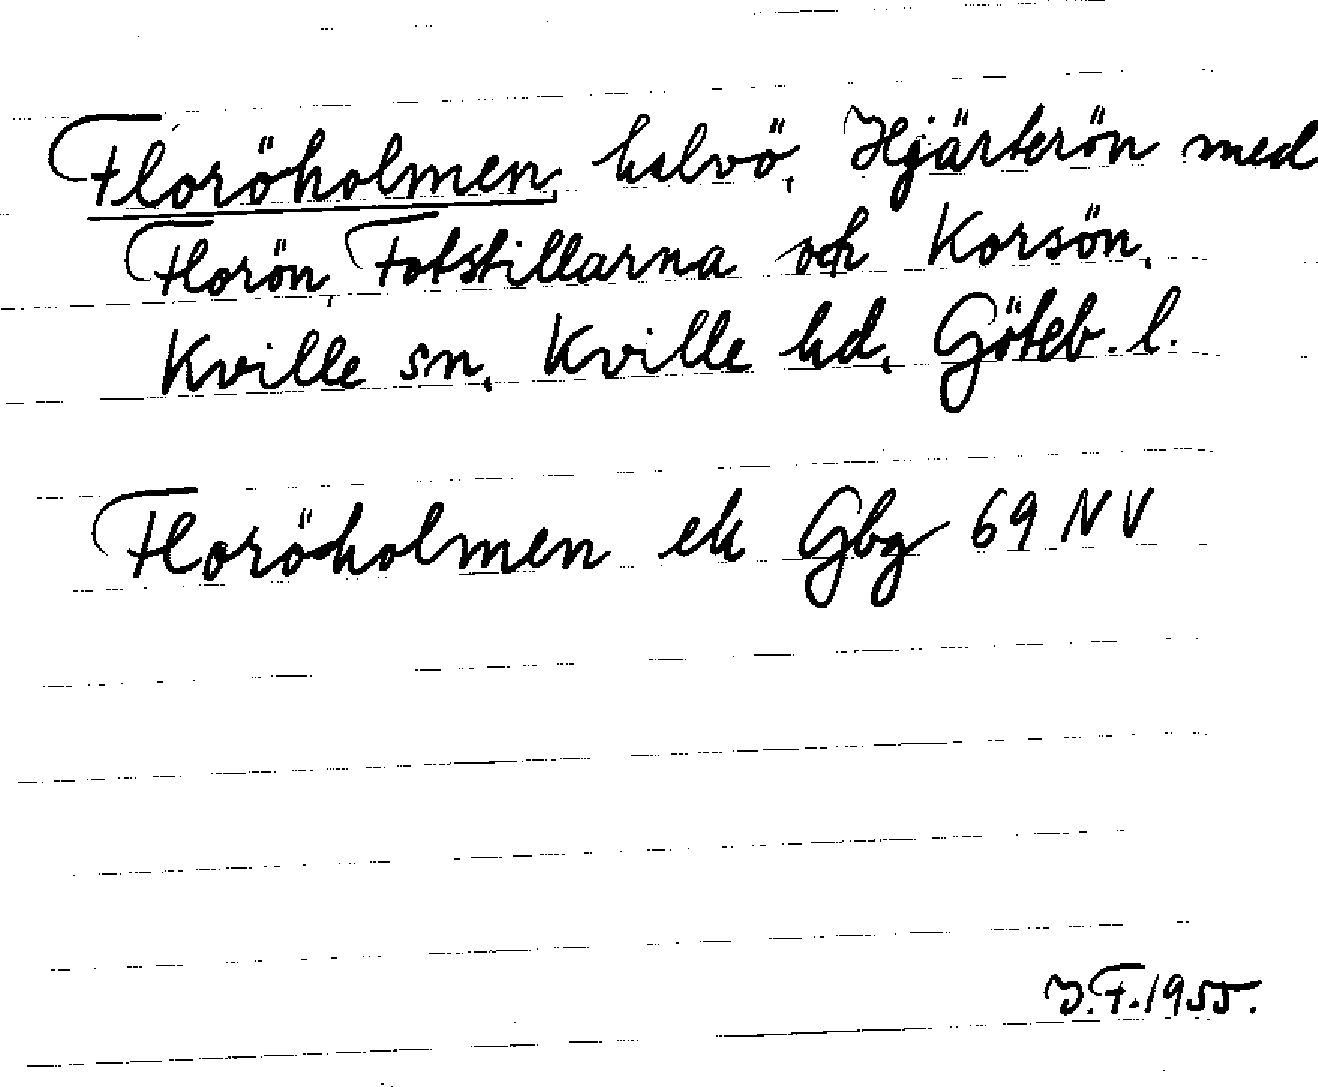 Floröholmen, halvö, Hjärterön med
Florön, Fotstillarna och Korsön,
Kville sn, Kville hd, Göteb. l.
Floröholmen ek Gbg 69 NV
J.F. 1955.